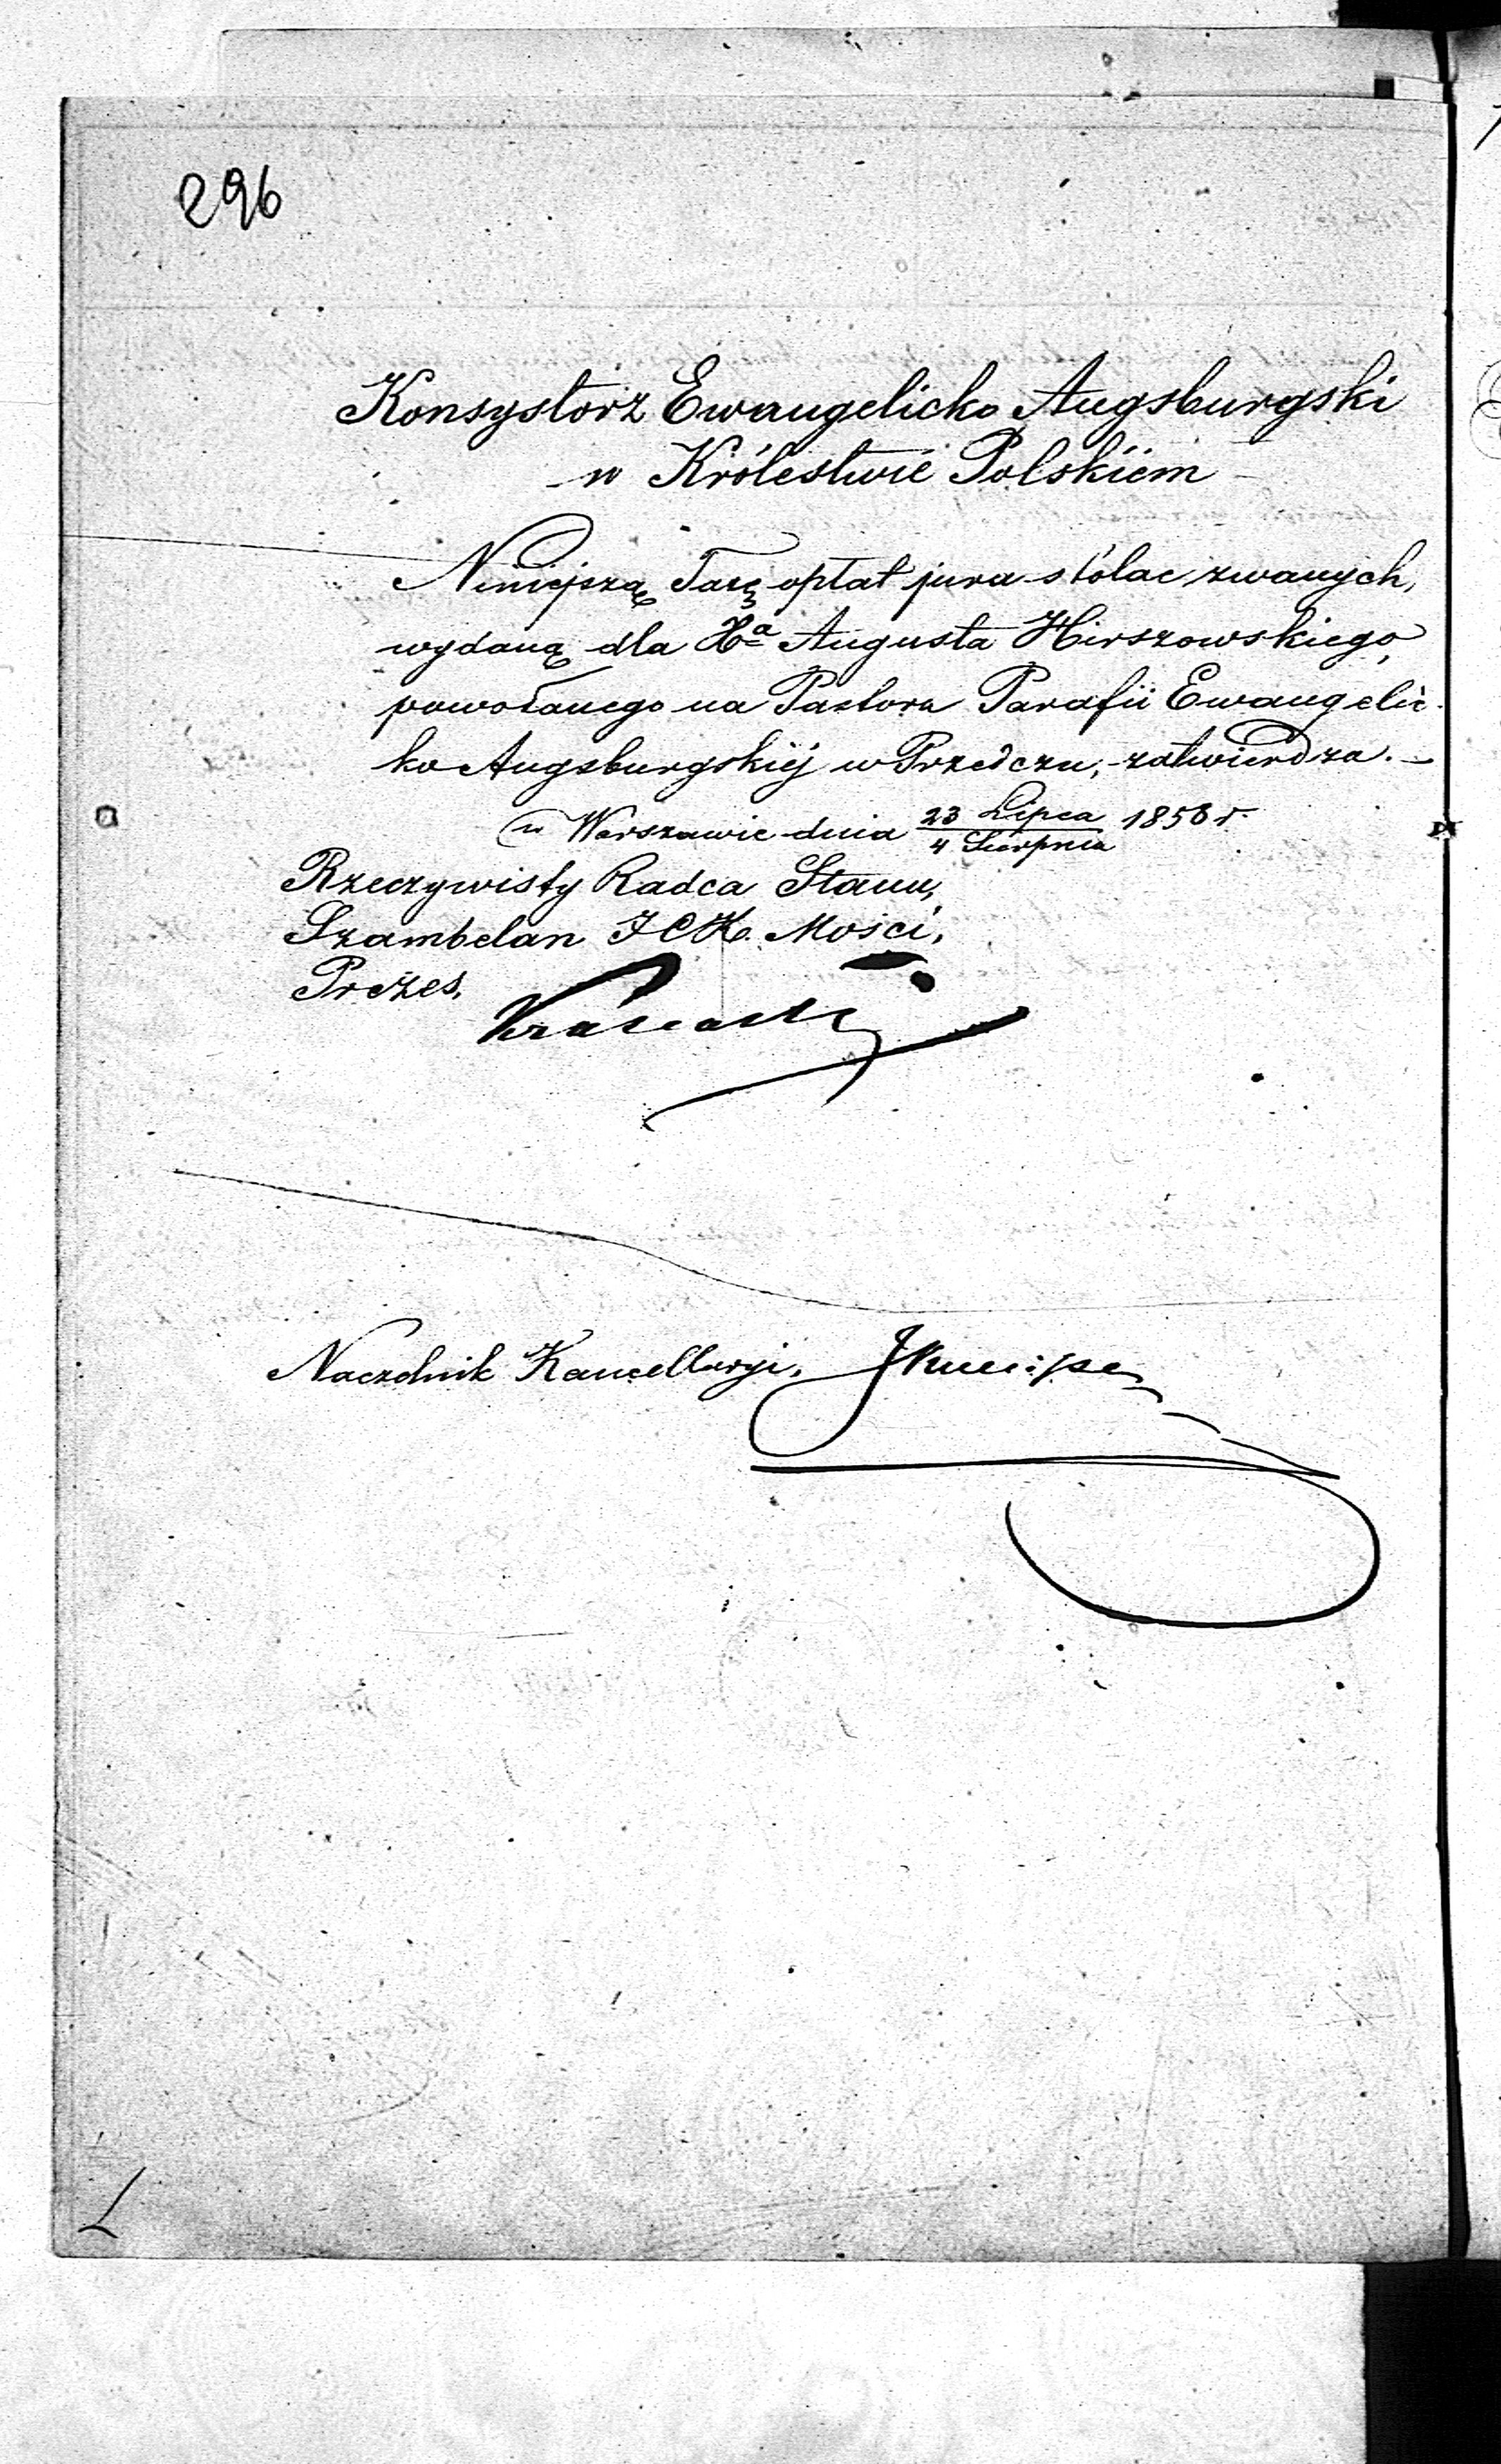 296
Konsystorz Ewangelicko Augsburgski
w Królestwie Polskiem
Niniejszą Taxę opłat jura stolae zwanych,
wydaną dla Xa Augusta Hirszowskiego,
powołanego na Pastora Parafii Ewangelic-
ko Augsburgskiéj w Przedczu, zatwierdza. –
w Warszawie dnia 23 Lipca / 4 Sierpnia 1858 r.
Rzeczywisty Radca Stanu,
Szambelan JCK. Mości,
Prezes,
Naczelnik Kancellaryi,